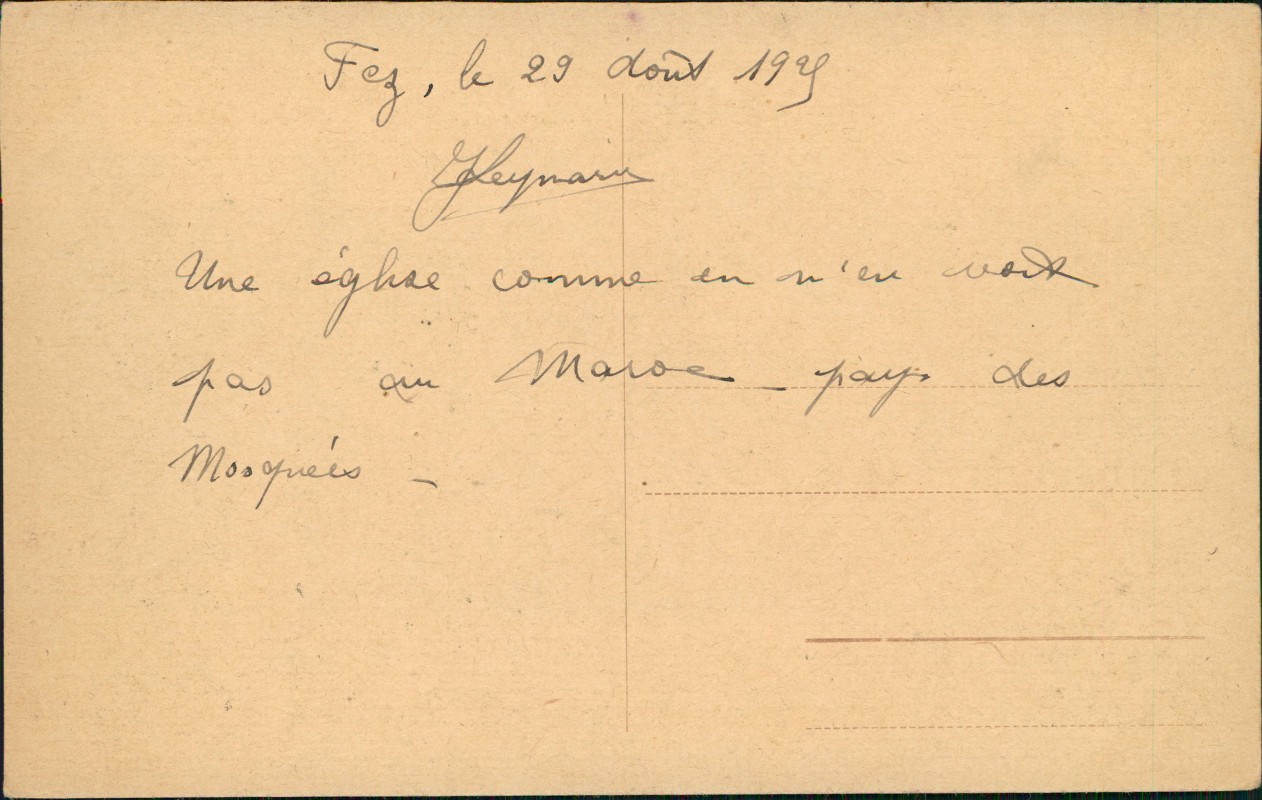 Fez, le 29 août 1925
Une église comme on n'en voit
pas au Maroc _ pays des
Mosquées _